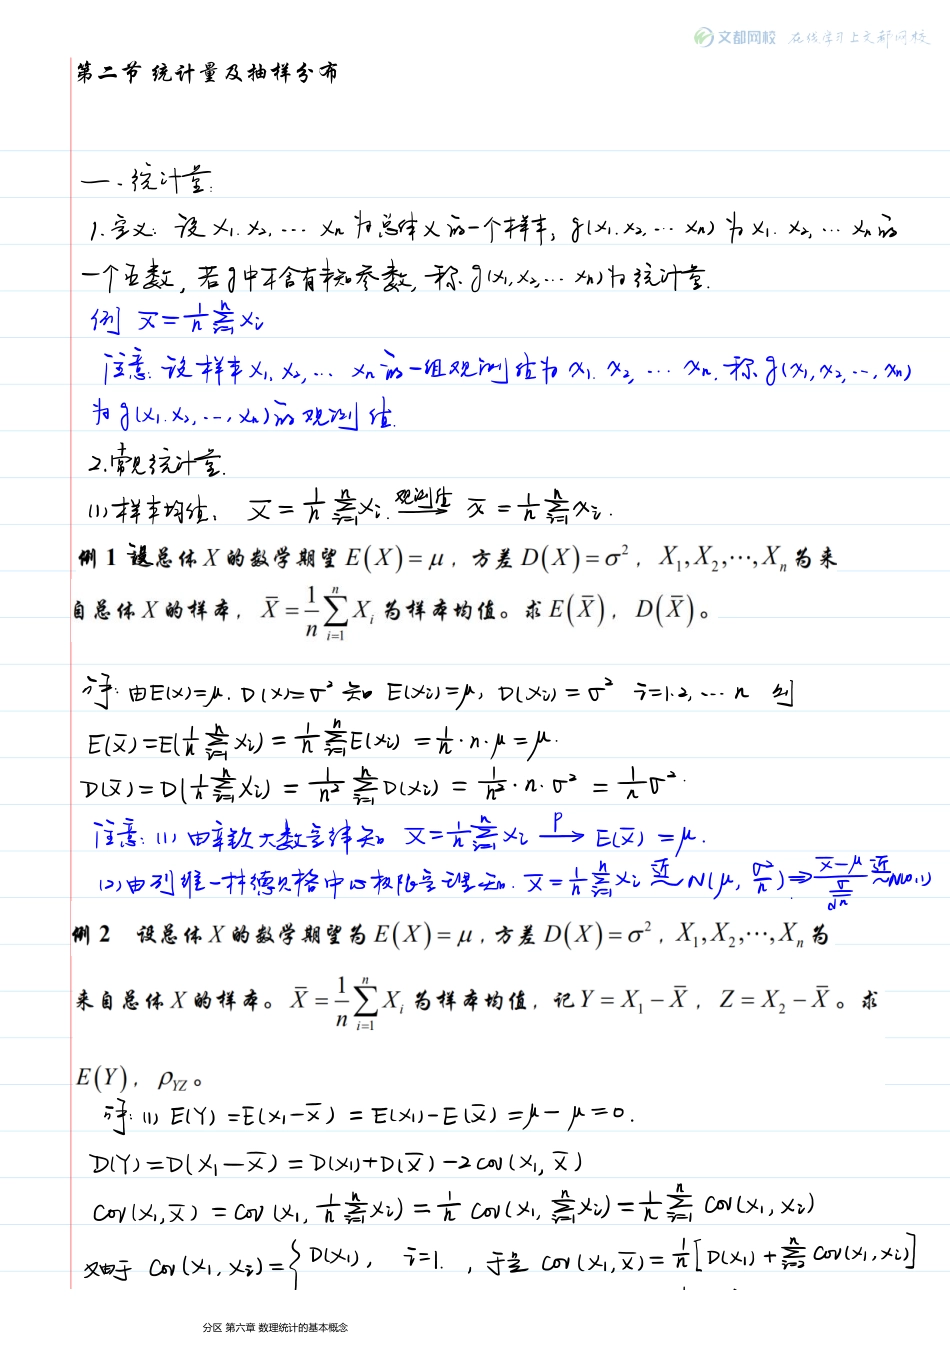 文都网校 在线学习上文都网校
第二节 统计量及抽样分布
一、统计量:
1.定义: 设 X₁, X₂, … Xₙ 为总体 X 的一个样本, g(X₁, X₂, … Xₙ) 为 X₁, X₂, … Xₙ 的
一个函数, 若 g 中不含有未知参数, 称 g(X₁, X₂, … Xₙ) 为统计量.
例 X̄ = 1/n ∑ᵢ₌₁ⁿ Xᵢ
注意: 设样本 X₁, X₂, … Xₙ 的一组观测值为 x₁, x₂, … xₙ, 称 g(x₁, x₂, …, xₙ)
为 g(X₁, X₂, …, Xₙ) 的观测值.
2.常见统计量.
(1) 样本均值, X̄ = 1/n ∑ᵢ₌₁ⁿ Xᵢ. 观测值→ x̄ = 1/n ∑ᵢ₌₁ⁿ xᵢ.
例 1 设总体 X 的数学期望 E(X) = μ, 方差 D(X) = σ², X₁, X₂, ⋯, Xₙ 为来
自总体 X 的样本, X̄ = 1/n ∑ᵢ₌₁ⁿ Xᵢ 为样本均值。求 E(X̄), D(X̄)。
解: 由 E(X)=μ, D(X)=σ² 知 E(Xᵢ)=μ, D(Xᵢ) = σ² i=1,2,… n 则
E(X̄) = E(1/n ∑ᵢ₌₁ⁿ Xᵢ) = 1/n ∑ᵢ₌₁ⁿ E(Xᵢ) = 1/n · n·μ = μ.
D(X̄) = D(1/n ∑ᵢ₌₁ⁿ Xᵢ) = 1/n² ∑ᵢ₌₁ⁿ D(Xᵢ) = 1/n² · n · σ² = 1/n σ².
注意: (1) 由辛钦大数定律知 X̄ = 1/n ∑ᵢ₌₁ⁿ Xᵢ P→ E(X̄) = μ.
(2) 由列维-林德贝格中心极限定理知. X̄ = 1/n ∑ᵢ₌₁ⁿ Xᵢ 近~ N(μ, σ²/n) ⇒ (X̄-μ)/(σ/√n) 近~ N(0,1)
例 2 设总体 X 的数学期望为 E(X) = μ, 方差 D(X) = σ², X₁, X₂, ⋯, Xₙ 为
来自总体 X 的样本。X̄ = 1/n ∑ᵢ₌₁ⁿ Xᵢ 为样本均值, 记 Y = X₁ − X̄, Z = X₂ − X̄。求
E(Y), ρ_YZ。
解: (1) E(Y) = E(X₁-X̄) = E(X₁)-E(X̄) = μ-μ = 0.
D(Y) = D(X₁-X̄) = D(X₁)+D(X̄)-2cov(X₁, X̄)
Cov(X₁, X̄) = Cov(X₁, 1/n ∑ᵢ₌₁ⁿ Xᵢ) = 1/n Cov(X₁, ∑ᵢ₌₁ⁿ Xᵢ) = 1/n ∑ᵢ₌₁ⁿ Cov(X₁, Xᵢ)
又由于 Cov(X₁, Xᵢ) = { D(X₁), i=1. , 于是 Cov(X₁, X̄) = 1/n [D(X₁) + ∑ᵢ₌₂ⁿ Cov(X₁, Xᵢ)]
分区 第六章 数理统计的基本概念